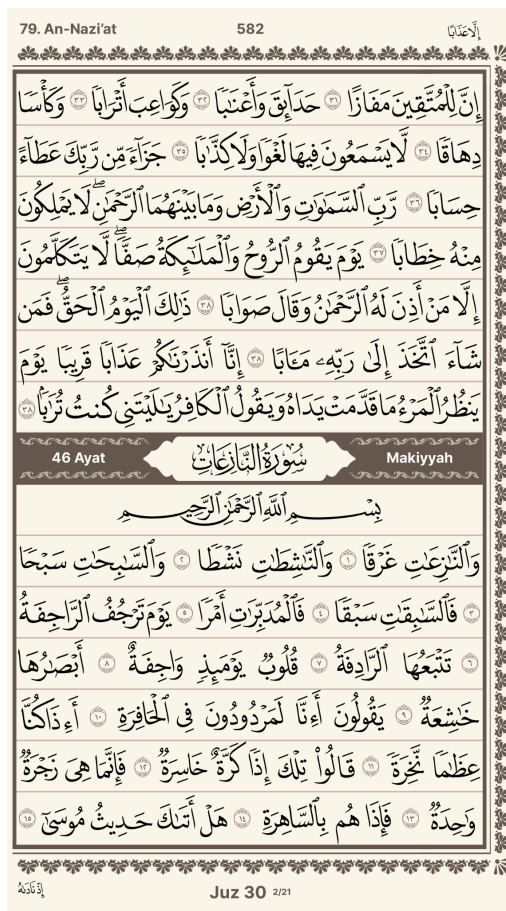 79. An-Nazi'at 582 إِلَّا عَذَابًا
إِنَّ لِلْمُتَّقِينَ مَفَازًا ٣١ حَدَآئِقَ وَأَعْنَٰبًا ٣٢ وَكَوَاعِبَ أَتْرَابًا ٣٣ وَكَأْسًا
دِهَاقًا ٣٤ لَّا يَسْمَعُونَ فِيهَا لَغْوًا وَلَا كِذَّٰبًا ٣٥ جَزَآءً مِّن رَّبِّكَ عَطَآءً
حِسَابًا ٣٦ رَّبِّ ٱلسَّمَٰوَٰتِ وَٱلْأَرْضِ وَمَا بَيْنَهُمَا ٱلرَّحْمَٰنِۖ لَا يَمْلِكُونَ
مِنْهُ خِطَابًا ٣٧ يَوْمَ يَقُومُ ٱلرُّوحُ وَٱلْمَلَٰٓئِكَةُ صَفًّاۖ لَّا يَتَكَلَّمُونَ
إِلَّا مَنْ أَذِنَ لَهُ ٱلرَّحْمَٰنُ وَقَالَ صَوَابًا ٣٨ ذَٰلِكَ ٱلْيَوْمُ ٱلْحَقُّۖ فَمَن
شَآءَ ٱتَّخَذَ إِلَىٰ رَبِّهِۦ مَـَٔابًا ٣٨ إِنَّآ أَنذَرْنَٰكُمْ عَذَابًا قَرِيبًا يَوْمَ
يَنظُرُ ٱلْمَرْءُ مَا قَدَّمَتْ يَدَاهُ وَيَقُولُ ٱلْكَافِرُ يَٰلَيْتَنِى كُنتُ تُرَٰبًۢا ٣٨
46 Ayat سُورَةُ النَّازِعَاتِ Makiyyah
بِسْمِ ٱللَّهِ ٱلرَّحْمَٰنِ ٱلرَّحِيمِ
وَٱلنَّٰزِعَٰتِ غَرْقًا ١ وَٱلنَّٰشِطَٰتِ نَشْطًا ٢ وَٱلسَّٰبِحَٰتِ سَبْحًا
٣ فَٱلسَّٰبِقَٰتِ سَبْقًا ٤ فَٱلْمُدَبِّرَٰتِ أَمْرًا ٥ يَوْمَ تَرْجُفُ ٱلرَّاجِفَةُ
٦ تَتْبَعُهَا ٱلرَّادِفَةُ ٧ قُلُوبٌ يَوْمَئِذٍ وَاجِفَةٌ ٨ أَبْصَٰرُهَا
خَٰشِعَةٌ ٩ يَقُولُونَ أَءِنَّا لَمَرْدُودُونَ فِى ٱلْحَافِرَةِ ١٠ أَءِذَا كُنَّا
عِظَٰمًا نَّخِرَةً ١١ قَالُوا۟ تِلْكَ إِذًا كَرَّةٌ خَاسِرَةٌ ١٢ فَإِنَّمَا هِىَ زَجْرَةٌ
وَٰحِدَةٌ ١٣ فَإِذَا هُم بِٱلسَّاهِرَةِ ١٤ هَلْ أَتَىٰكَ حَدِيثُ مُوسَىٰٓ ١٥
إِذْ نَادَىٰهُ Juz 30 2/21